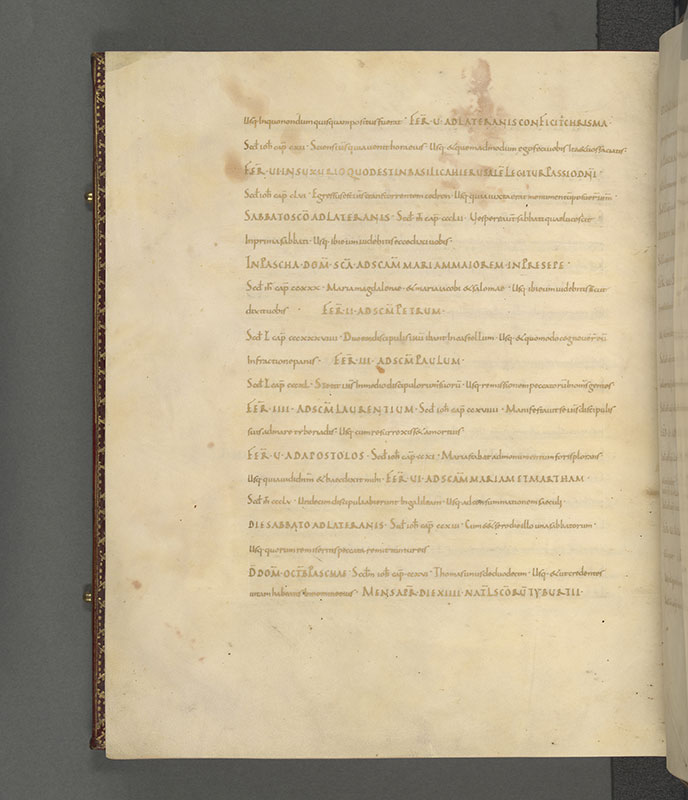 Usq· Inquonondumquisquampositusfuerat· FER̄· U· ADLATERANISCONFICIT̄CHRISMA·
Scd̄ ioh̄ cap̄ Sciensiesusquiauenithoraeius· Usq· &quemadmodumegofeciuobis Ita&uosfaciatis·
FER̄· UI· INSUXURIO QUODESTINBASILICAHIERUSALEM̄ LEGITURPASSIODN̄I·
Scd̄ ioh̄ cap̄ CLVI· Egressusiesus transtorrentemcedron· Usq· quiaiuxtaerat monumentum
SABBATOSCŌ ADLATERANIS· Scd̄ m̄ cap̄ CCCLII· Uesperaut̄ sabbati quaelucescit
Inprimasabbati· Usq· ibieumuidebitis eccedixiuobis·
INPASCHA· DOM̄· SCĀ· ADSCAM̄ MARIAMMAIOREM· INPRESEPE·
Scd̄ m̄ cap̄ CCXXX· Mariamagdalenae· &maria iacobi &salomae· Usq· ibieumuidebitis sicut
dixituobis· FER̄· II· ADSCM̄ PETRUM·
Scd̄ L cap̄ CCCXXXVIIII· Duoexdiscipulis ibant Incastellum· Usq· &quomodocognouer̄
Infractionepanis· FER̄· III· ADSCM̄ PAULUM·
Scd̄ L cap̄ Stetit iesus Inmediodiscipulorum Usq· remissionem peccatorū gentes
FER̄· IIII· ADSCM̄ LAURENTIUM· Scd̄ ioh̄ cap̄ CCXVIIII· Manifestauit se discipulis
suis admaretyberiadis· Usq· cumresurrexiss& amortuis·
FER̄· U· ADAPOSTOLOS· Scd̄ ioh̄ cap̄ CCXI· Mariastabat admonumentumforisplorans·
Usq· quiauididnm̄ &haecdixitmihi· FER̄· UI· ADSCAM̄ MARIAM ETMARTHAM·
Scd̄ m̄ CCCLV· Undecimdiscipuliabierunt Ingalilaeam· Usq· adconsummationemsaeculi·
DIESABBATO ADLATERANIS· Scd̄ ioh̄ cap̄ CCXIII· Cumess&serodieillo unasabbatorum·
Usq· quorumremiseritispeccata remittunturei
D̄ DOM̄· OCTB̄ PASCHAE· Scdm̄ ioh̄ cap̄ CCXVI· Thomasunusdeduodecim· Usq· &utcredentes
uitamhabeatis Innomineeius· MENSAPR̄· DIEXIIII· NAT̄L SCŌRŪ TYBURTII·